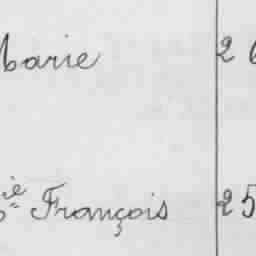 Marie 26
François 25